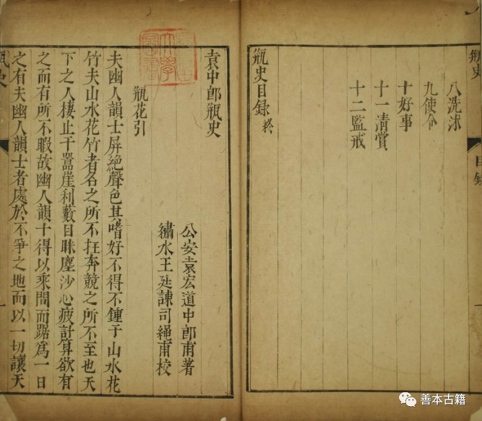 瓶史
目錄
八洗沐
九使令
十好事
十一清賞
十二監戒
瓶史目錄終
袁中郎瓶史
公安袁宏道中郎甫著
繡水王廷諫司繩甫校
瓶花引
夫幽人韻士屏絕聲色其嗜好不得不鍾于山水花
竹夫山水花竹者名之所不在奔競之所不至也天
下之人棲止于囂崖利藪目眯塵沙心疲計算欲有
之而有所不暇故幽人韻士得以乘間而踞為一日
之有夫幽人韻士者處於不爭之地而以一切讓天
瓶史
善本古籍